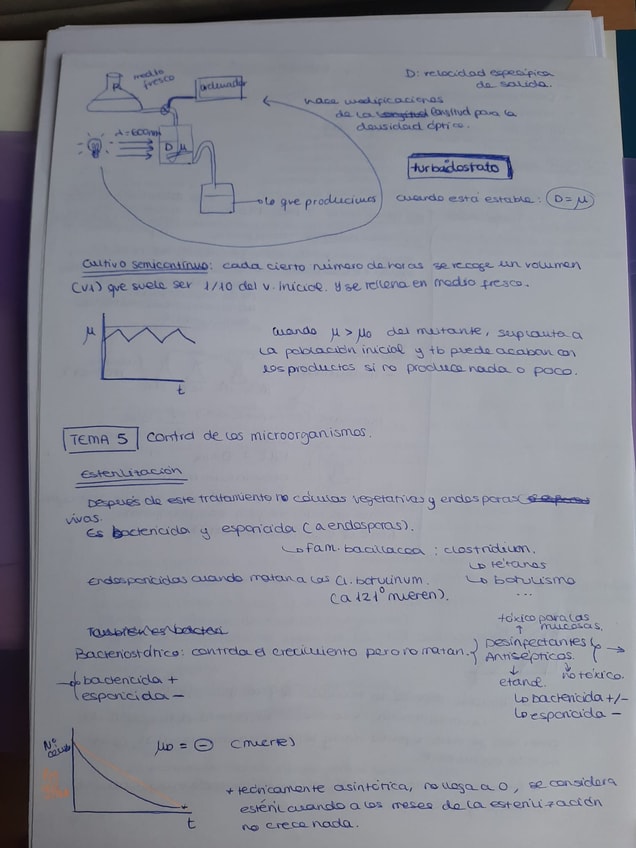 medio
fresco
ordenador
D: velocidad específica
de salida.
hace modificaciones
de la longitud para la
densidad óptica.
λ=600nm
D μ
turbidostato
lo que producimos
cuando está estable: D=μ
Cultivo semicontinuo: cada cierto número de horas se recoge un volumen
(V1) que suele ser 1/10 del v. inicial. Y se rellena en medio fresco.
μ
t
cuando μ > μ₀ del mutante, suplanta a
la población inicial y tb puede acaban con
los productos si no produce nada o poco.
TEMA 5 Control de los microorganismos.
Esterilización
Después de este tratamiento no células vegetativas y endosporas
vivas.
Es bactericida y esporicida (a endosporas).
↳ fam. bacillacea : clostridium.
↳ tétanos
Endosporicidas cuando matan a los Cl. botulinum. ↳ botulismo
(a 121° mueren). ...
tóxico para las
mucosas.
Bacteriostático: controla el crecimiento pero no matan. Desinfectantes
Antisépticos
bactericida +
esporicida -
no tóxico.
etanol
↳ bactericida +/-
↳ esporicida -
Nº
μ₀ = ⊖ (muerte)
t
* técnicamente asintótica, no llega a 0, se considera
estéril cuando a los meses de la esterilización
no crece nada.